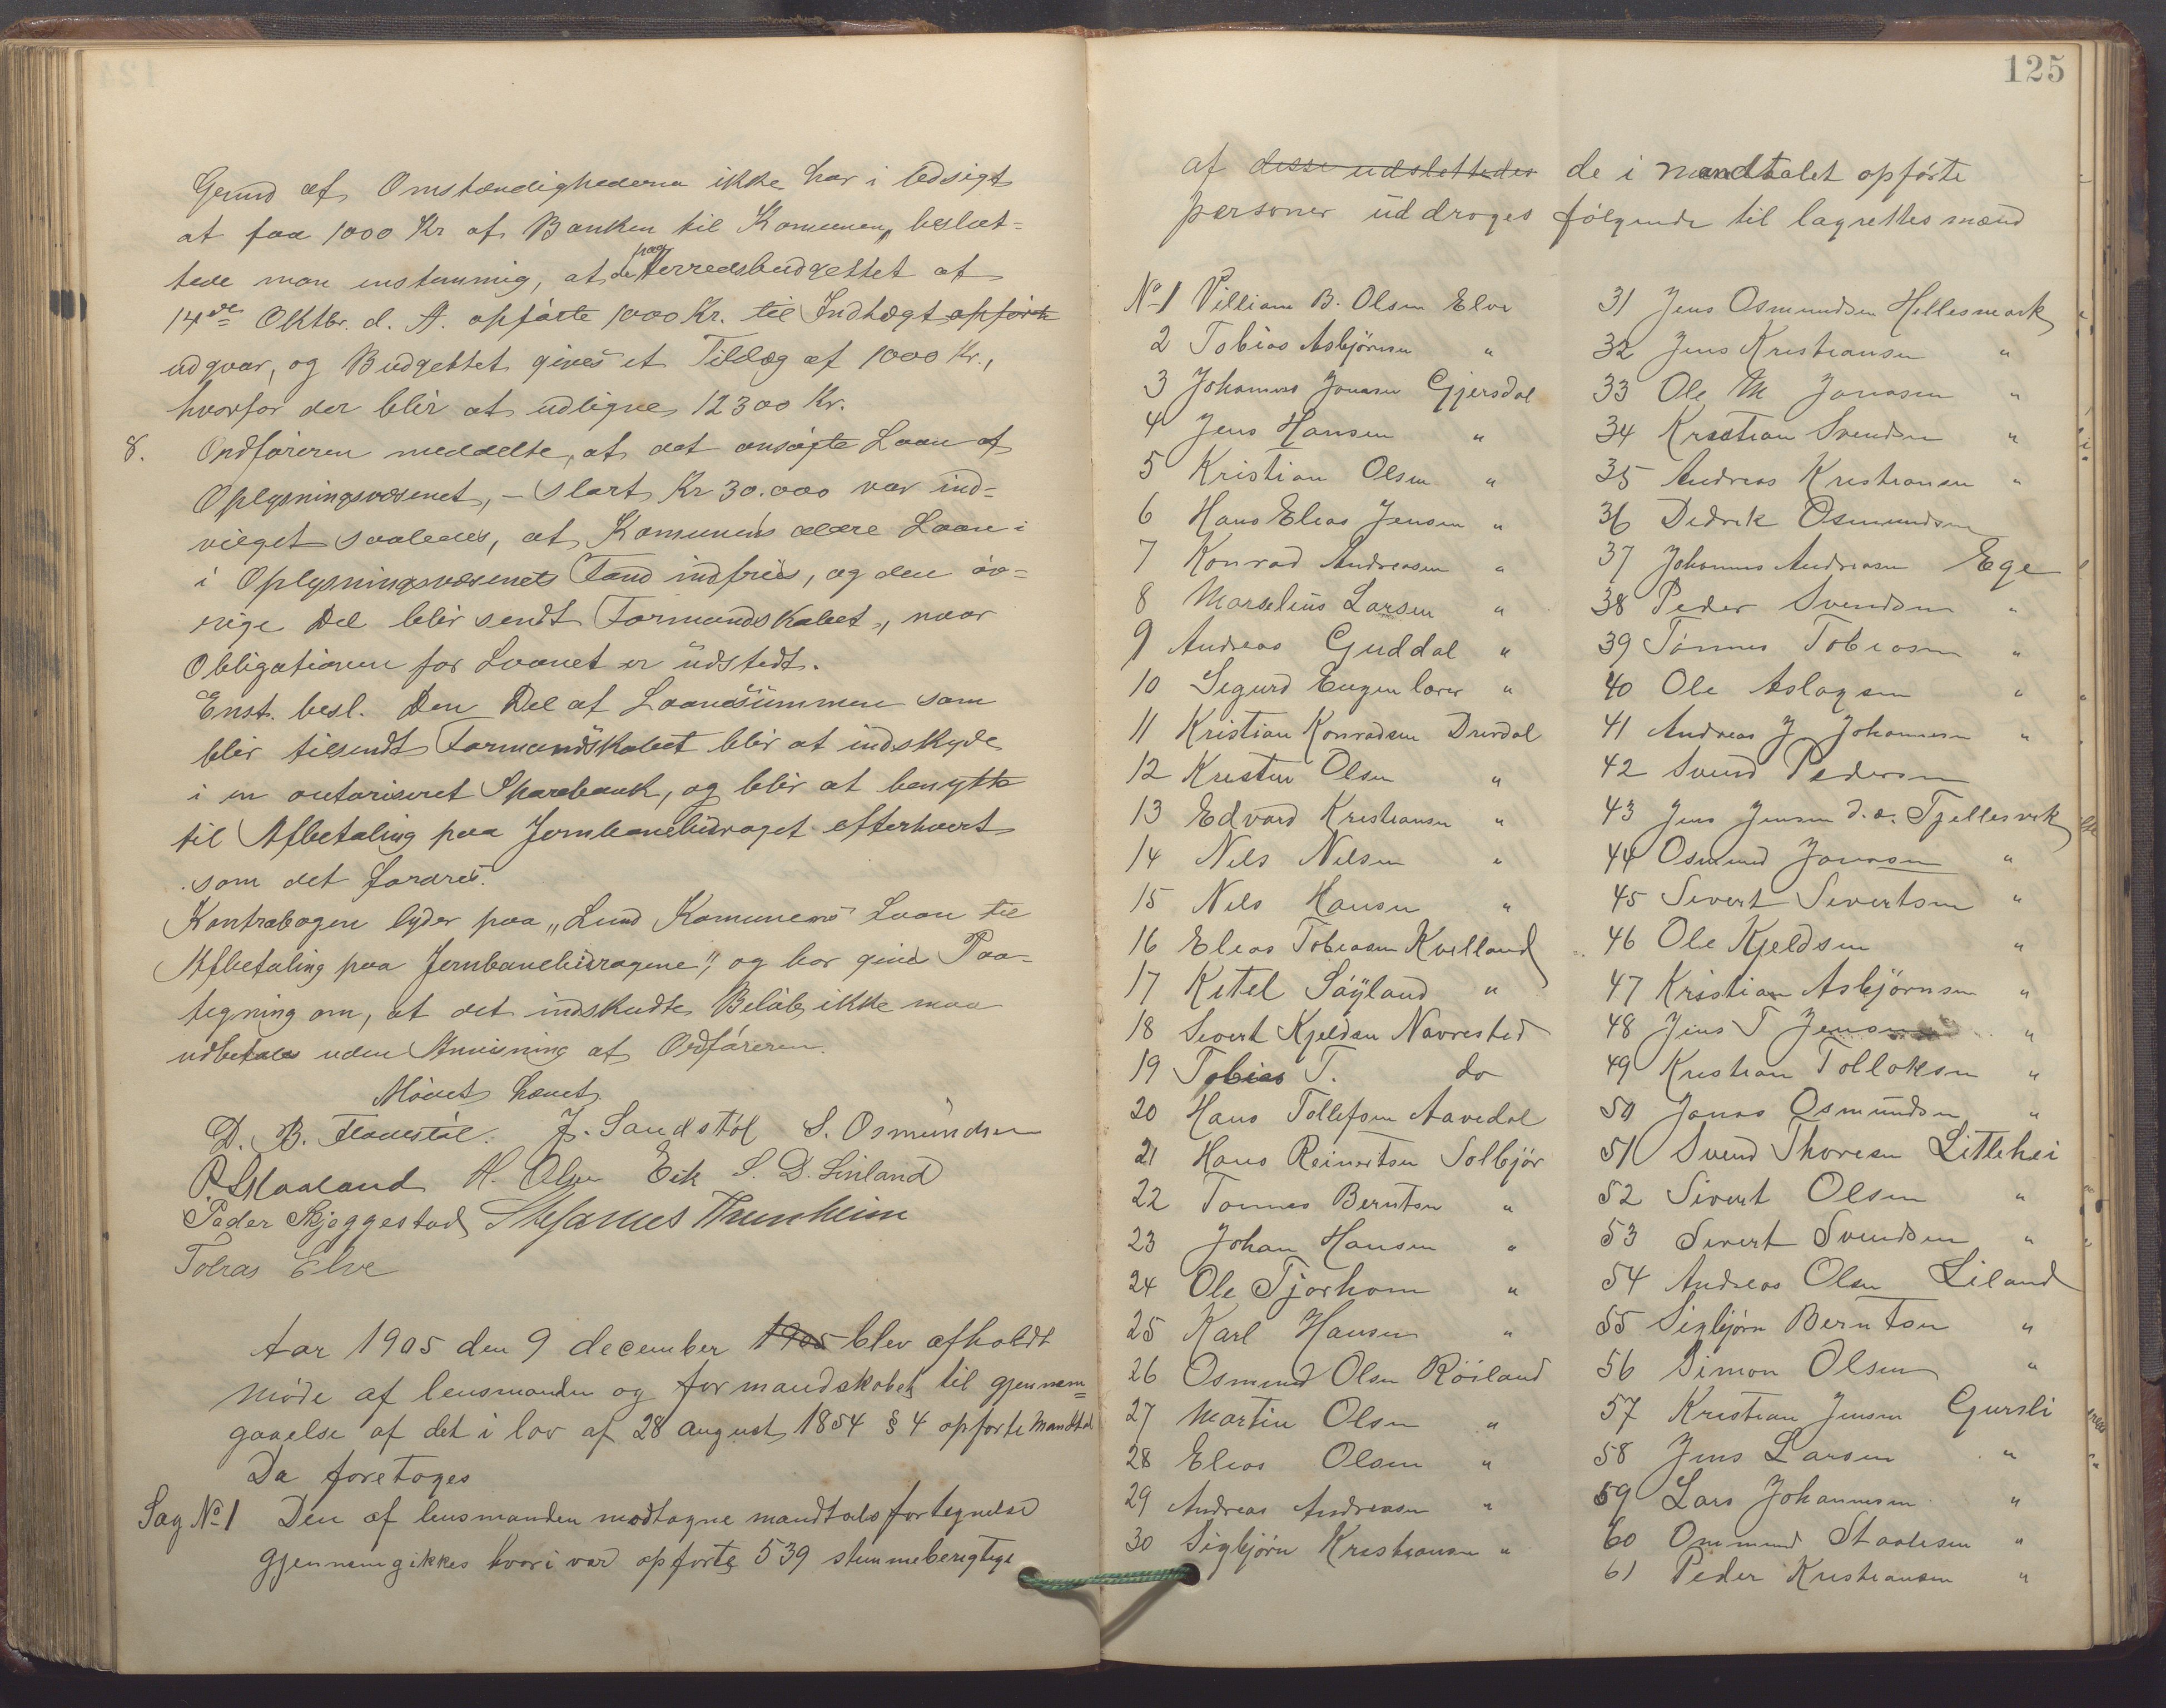 Grund af Omstændighederne ikke har i Udsigt
at faa 1000 Kr af Banken til Komunen, beslut-
tede man enstemmig, at de paa Herredsbudgettet af
14de Oktbr. d. A. opførte 1000 Kr. til Indtægt opførte
udgaar, og Budgettet gives et Tillæg af 1000 Kr.,
hvorfor der blir at udligne 12300 Kr.
8. Ordføreren meddelte, at det ansøgte Laan af
Oplysningsvæsenet, – stort Kr 30.000 var ind-
vilget saaledes, at Komunens ældre Laan i
i Oplysningsvæsenets Fond indfries, og den øv-
rige Del blir sendt Formandskabet, naar
Obligationen for Laanet er udstedt.
Enst. besl. Den Del af Laanesummen som
blir tilsendt Formandskabet blir at indskyde
i en autoriseret Sparebank, og blir at benytte
til Afbetaling paa Jernbanebidraget efterhvert
som det fordres.
Kontrabogen lyder paa „Lund Komunens Laan til
Afbetaling paa Jernbanebidragene", og bør gives Paa-
tegning om, at det indskudte Beløb ikke maa
udbetales uden Anvisning af Ordføreren.
Mødet hævet.
D. B. Flaaestøl. J. Sandstøl S. Osmundsen
P. Skaaland H. Olsen Eik S. D. Linland
Peder Skjeggestad Thrunheim
Tobias Elve
Aar 1905 den 9 december 1905 blev afholdt
møde af lensmanden og formandskabet til gjennem-
gaaelse af det i lov af 28 august 1854 § 4 opførte Mandtal
Da foretoges
Sag No 1 Den af lensmanden modtagne mandtalsfortegnelse
gjennemgikkes hvori var opførte 539 stemmeberigtige
125
af disse udslettedes de i mandtalet opførte
personer uddroges følgende til lagrettesmænd
No 1 Villiam B. Olsen Elve
2 Tobias Asbjørnsen "
3 Johannes Jonasen Gjersdal
4 Jens Hansen "
5 Kristian Olsen "
6 Hans Elias Jensen "
7 Konrad Andreasen "
8 Marselius Larsen "
9 Andreas Guddal "
10 Segurd Eugen lærer "
11 Kristian Konradsen Drivdal
12 Kresten Olsen "
13 Edvard Kristiansen "
14 Nils Nilsen "
15 Nils Hansen "
16 Elias Tobiasen Kvelland
17 Ketel Søyland "
18 Sivert Kjeldsen Navrested
19 Tobias T. do
20 Hans Tollefsen Aavedal
21 Hans Reinertsen Solbjør
22 Tønnes Berntsen "
23 Johan Hansen "
24 Ole Tjørhom "
25 Karl Hansen "
26 Osmund Olsen Røiland
27 Martin Olsen "
28 Elias Olsen "
29 Andreas Andreasen "
30 Sigbjørn Kristiansen "
31 Jens Osmundsen Hellesmark
32 Jens Kristiansen "
33 Ole M Jonasen "
34 Kristian Svendsen "
35 Andreas Kristiansen "
36 Didrik Osmundsen
37 Johannes Andreasen Ege
38 Peder Svendsen "
39 Tønnes Tobiasen "
40 Ole Aslagsen "
41 Andreas J Johannesen "
42 Svend Pedersen
43 Jens Jensen d. æ. Tjellesvik
44 Osmund Jonasen "
45 Sivert Sivertsen "
46 Ole Kjeldsen "
47 Kristian Asbjørnsen "
48 Jens T Jensen "
49 Kristian Tolloksen "
50 Jonas Osmundsen "
51 Svend Thoresen Litlehei
52 Sivert Olsen "
53 Sivert Svendsen "
54 Andreas Olsen Liland
55 Sigbjørn Berntsen "
56 Simon Olsen "
57 Kristian Jensen Gursli
58 Jens Larsen "
59 Lars Johannesen "
60 Ommund Staalesen "
61 Peder Kristiansen "